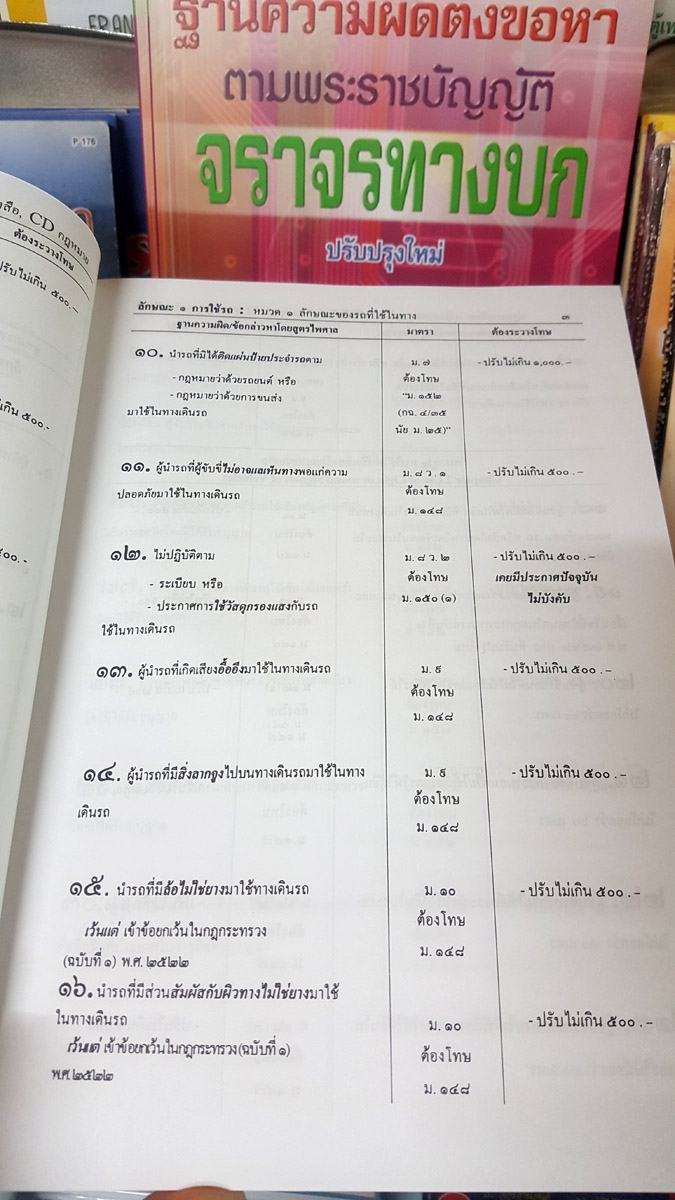 FRAN
ฐานความผิดตั้งข้อหา
ตามพระราชบัญญัติ
จราจรทางบก
ปรับปรุงใหม่
P 176
CD กฎหมาย
ต้องระวางโทษ
ปรับไม่เกิน ๕๐๐.-
๕๐๐.-
ลักษณะ ๑ การใช้รถ : หมวด ๑ ลักษณะของรถที่ใช้ในทาง ๓
ฐานความผิด/ข้อกล่าวหาโดยสูตรไพศาล มาตรา ต้องระวางโทษ
๑๐. นำรถที่มิได้ติดแผ่นป้ายประจำรถตาม ม. ๗ - ปรับไม่เกิน ๑,๐๐๐.-
- กฎหมายว่าด้วยรถยนต์ หรือ ต้องโทษ
- กฎหมายว่าด้วยการขนส่ง "ม. ๑๕๒
มาใช้ในทางเดินรถ (กฉ. ๔/๓๕
นัย ม. ๒๕)"
๑๑. ผู้นำรถที่ผู้ขับขี่ไม่อาจแลเห็นทางพอแก่ความ ม. ๘ ว. ๑ - ปรับไม่เกิน ๕๐๐.-
ปลอดภัยมาใช้ในทางเดินรถ ต้องโทษ
ม. ๑๔๘
๑๒. ไม่ปฏิบัติตาม ม. ๘ ว. ๒ - ปรับไม่เกิน ๕๐๐.-
- ระเบียบ หรือ ต้องโทษ เคยมีประกาศปัจจุบัน
- ประกาศการใช้วัสดุกรองแสงกับรถ ม. ๑๕๐ (๑) ไม่บังคับ
ใช้ในทางเดินรถ
๑๓. ผู้นำรถที่เกิดเสียงอื้ออึงมาใช้ในทางเดินรถ ม. ๙ - ปรับไม่เกิน ๕๐๐.-
ต้องโทษ
ม. ๑๔๘
๑๔. ผู้นำรถที่มีสิ่งลากถูไปบนทางเดินรถมาใช้ในทาง ม. ๙ - ปรับไม่เกิน ๕๐๐.-
เดินรถ ต้องโทษ
ม. ๑๔๘
๑๕. นำรถที่มีล้อไม่ใช่ยางมาใช้ทางเดินรถ ม. ๑๐ - ปรับไม่เกิน ๕๐๐.-
เว้นแต่ เข้าข้อยกเว้นในกฎกระทรวง ต้องโทษ
(ฉบับที่ ๑) พ.ศ. ๒๕๒๒ ม. ๑๔๘
๑๖. นำรถที่มีส่วนสัมผัสกับผิวทางไม่ใช่ยางมาใช้
ในทางเดินรถ ม. ๑๐ - ปรับไม่เกิน ๕๐๐.-
เว้นแต่ เข้าข้อยกเว้นในกฎกระทรวง (ฉบับที่ ๑) ต้องโทษ
พ.ศ. ๒๕๒๒ ม. ๑๔๘